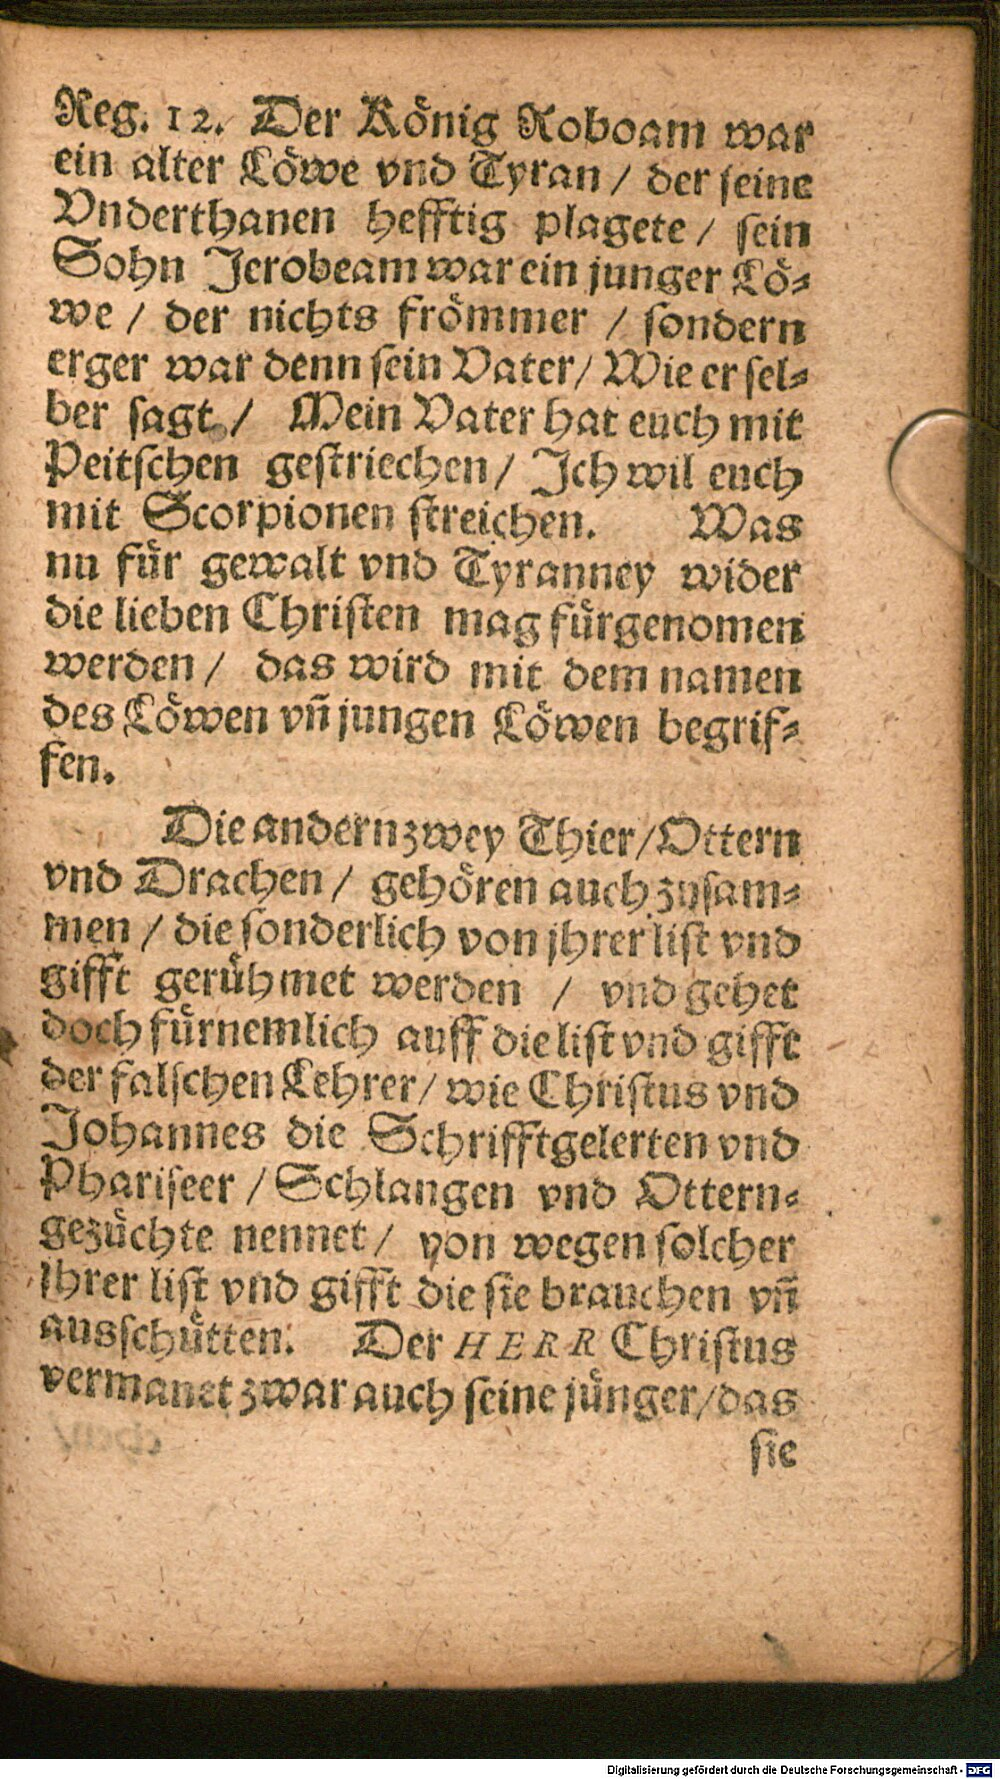 Reg. 12. Der König Roboam war
ein alter Löwe vnd Tyran / der seine
Vnderthanen hefftig plagete / sein
Sohn Jerobeam war ein junger Lö-
we / der nichts frömmer / sondern
erger war denn sein Vater / Wie er sel-
ber sagt / Mein Vater hat euch mit
Peitschen gestriechen / Ich wil euch
mit Scorpionen streichen. Was
nu für gewalt vnd Tyranney wider
die lieben Christen mag fürgenomen
werden / das wird mit dem namen
des Löwen vñ jungen Löwen begrif-
fen.
Die andern zwey Thier / Ottern
vnd Drachen / gehören auch zusam-
men / die sonderlich von jhrer list vnd
gifft gerühmet werden / vnd gehet
doch fürnemlich auff die list vnd gifft
der falschen Lehrer / wie Christus vnd
Johannes die Schrifftgelerten vnd
Phariseer / Schlangen vnd Ottern-
gezüchte nennet / von wegen solcher
jhrer list vnd gifft die sie brauchen vñ
ausschütten. Der HERR Christus
vermanet zwar auch seine jünger / das
sie
Digitalisierung gefördert durch die Deutsche Forschungsgemeinschaft - DFG